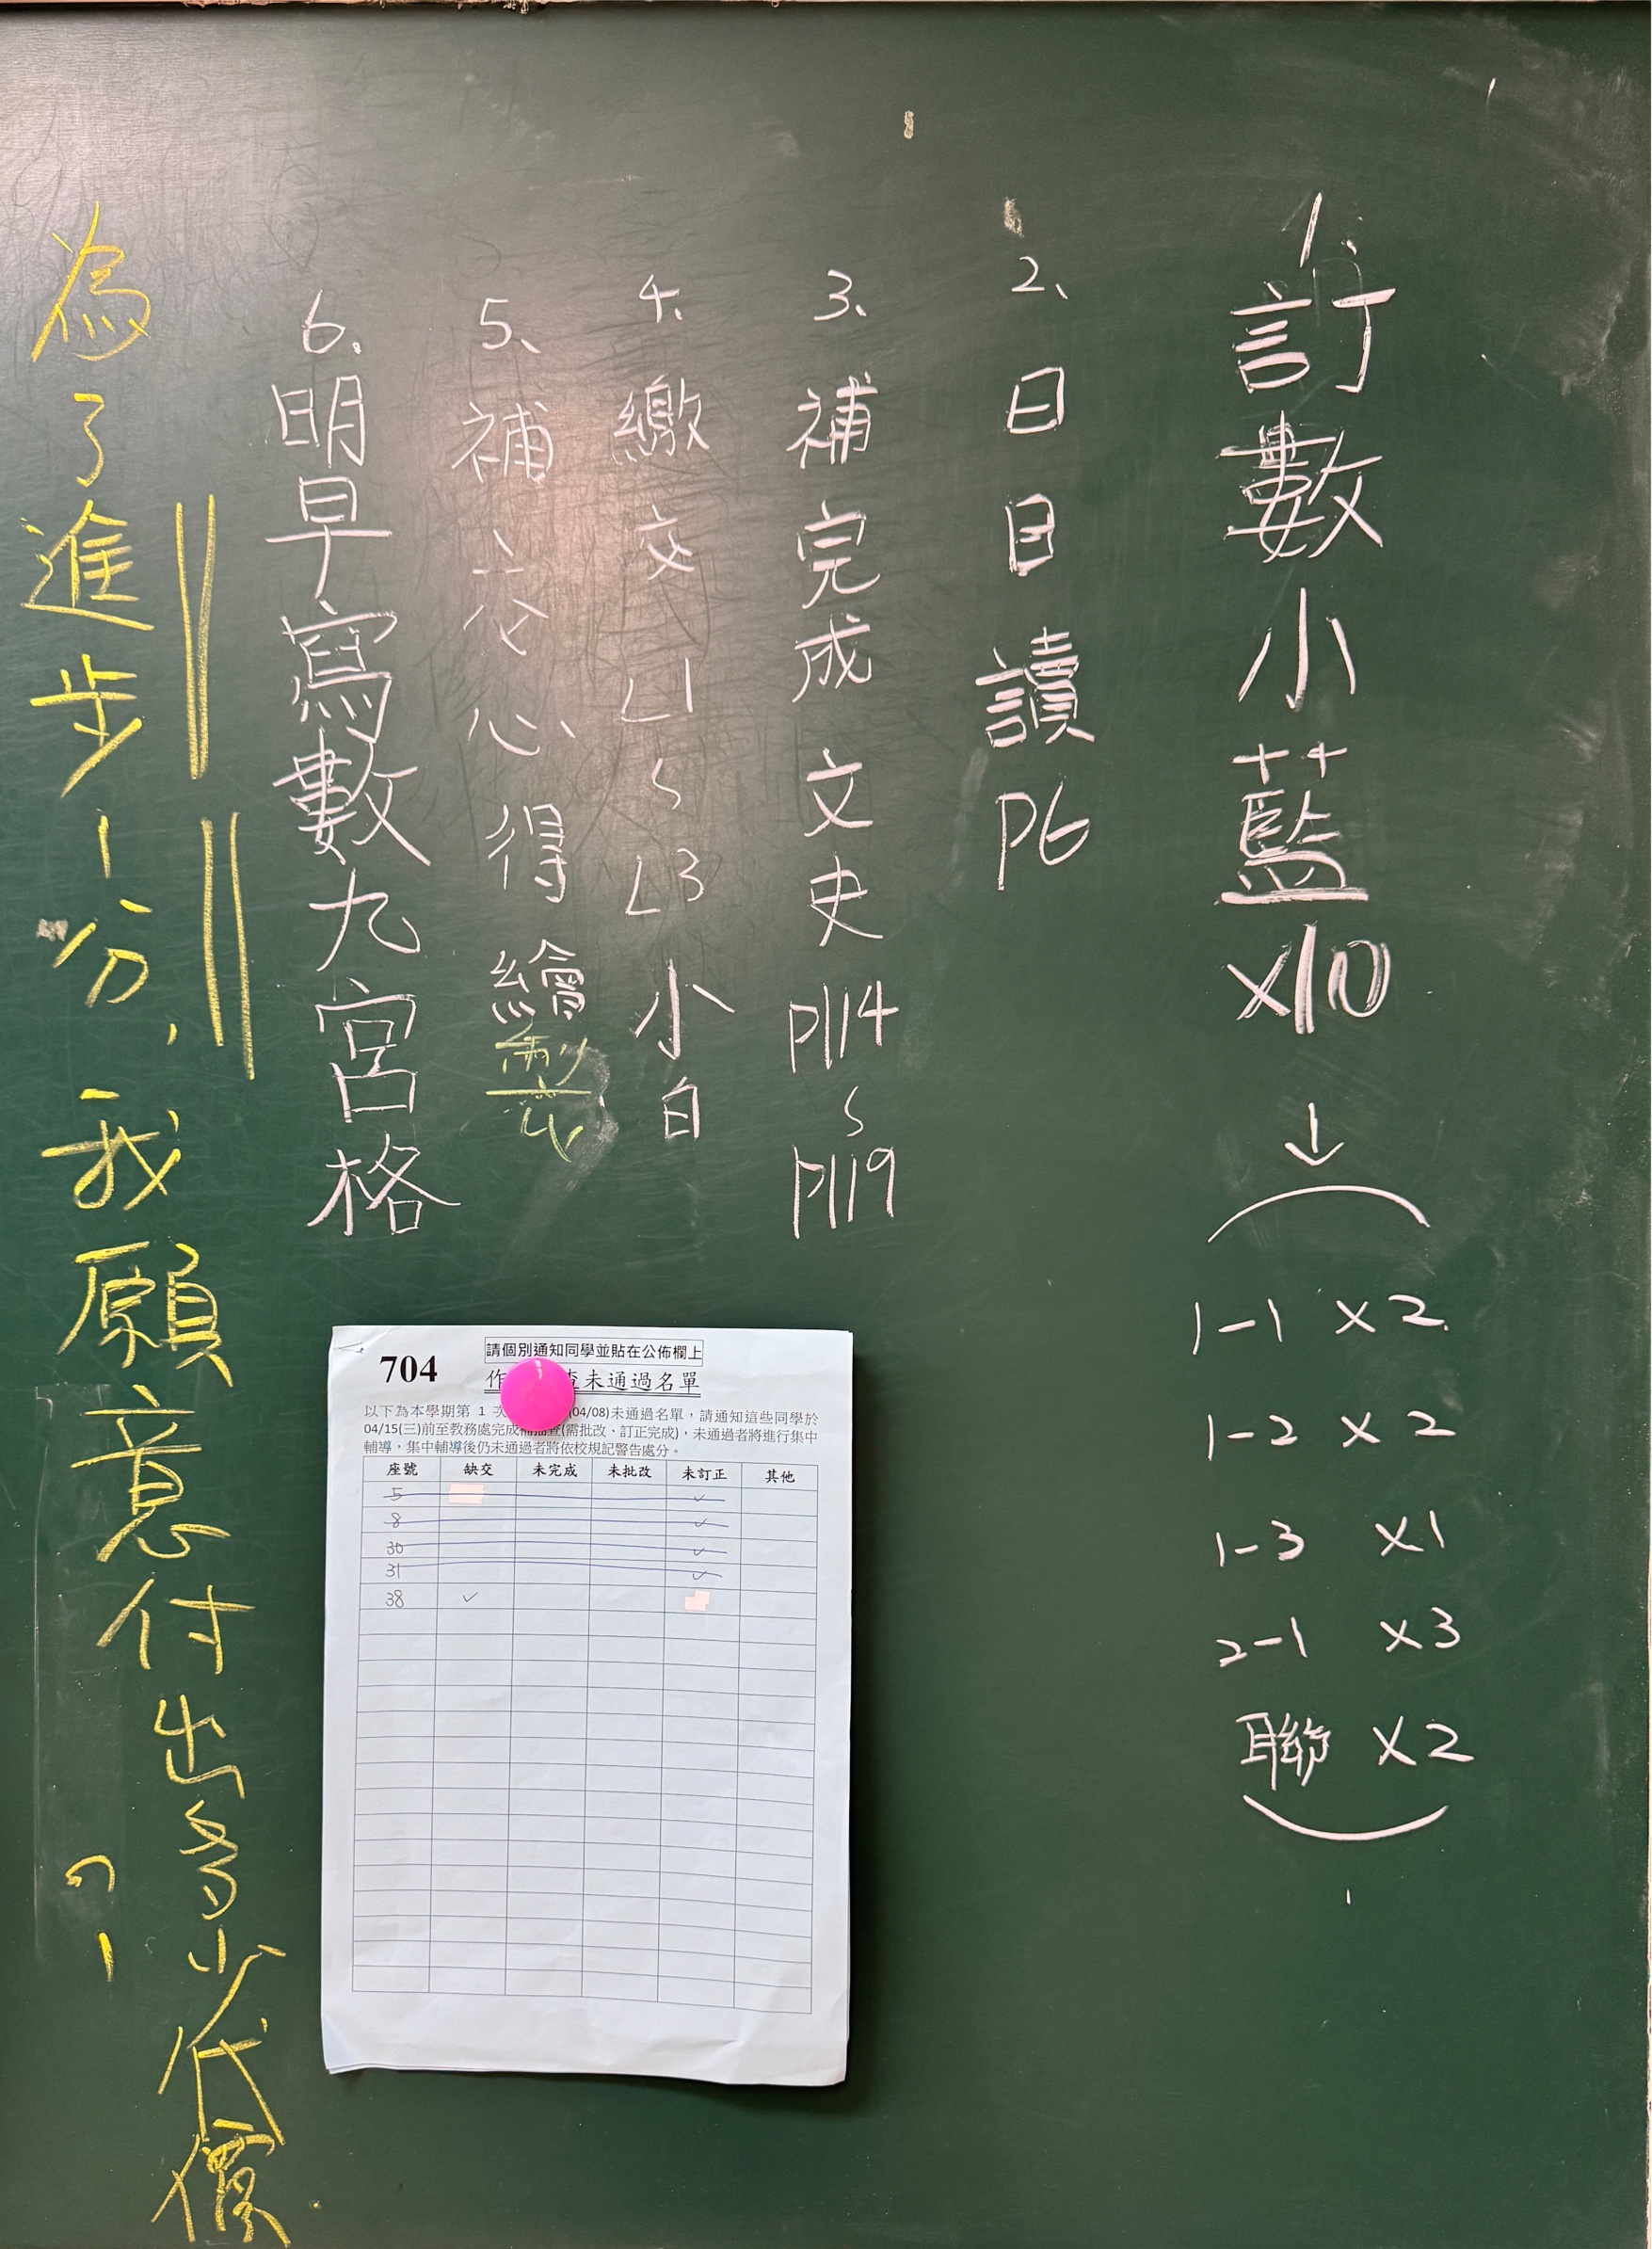 1、訂數小藍x10
↓
(1-1 x2
1-2 x2
1-3 x1
2-1 x3
聯 x2)
2、日日讀P6
3、補完成文史P114~P119
4、繳交L1~L3小白
5、補交心得繪製
6、明早寫數九宮格
為了進步1分,我願意付出多少代價?
請個別通知同學並貼在公佈欄上
704
作 查未通過名單
以下為本學期第 1 次 (04/08)未通過名單,請通知這些同學於
04/15(三)前至教務處完成補抽查(需批改、訂正完成),未通過者將進行集中
輔導,集中輔導後仍未通過者將依校規記警告處分。
座號 缺交 未完成 未批改 未訂正 其他
5 ✓
8 ✓
30 ✓
31 ✓
38 ✓